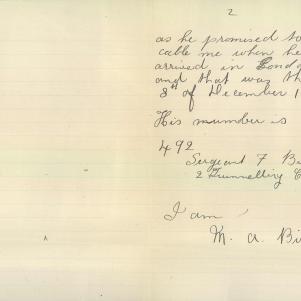 2
as he promised to
cable me when he
arrived in
and that was
8th of December 1
His mumber is
492
Sergeant F
2 Tunnelling
I am
M. A.